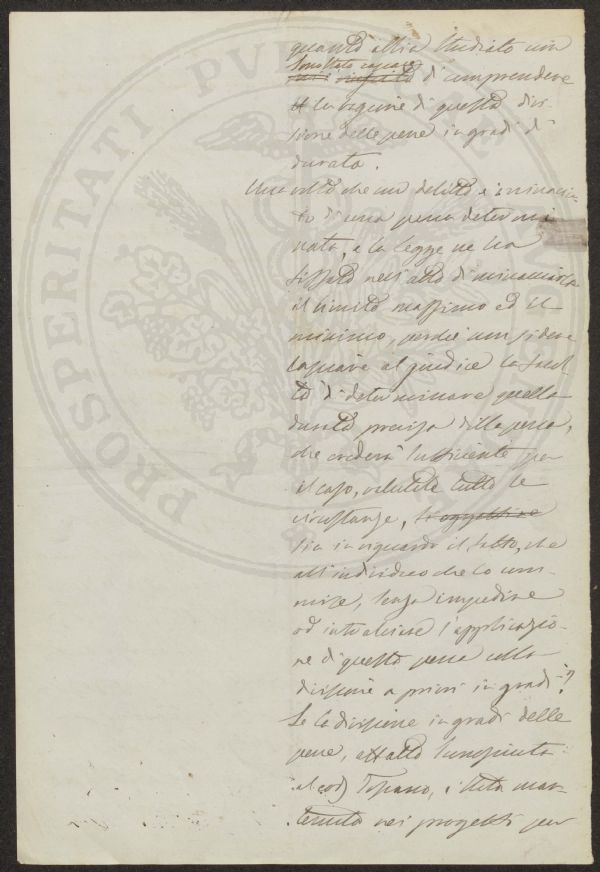 quanto abbia studiato non
sono stato capace
di comprendere
la ragione di questa divi-
sione delle pene in gradi di
durata.
Una volta che un delitto è minaccia-
to di una pena determi-
nata, e la legge ne ha
fissato nell'atto di minacciarla
il limite massimo ed il
minimo, perché non si deve
lasciare al giudice la facol
tà di determinare quella
durata precisa della pena,
che crederà sufficiente per
il caso, valutate tutte le
circostanze, soggettive
sia in riguardo il fatto, che
all'individuo che lo com-
mise, senza impedire
od intralciare l'applicazio-
ne di questa pena colla
divisione a priori in gradi?
Se la divisione in gradi delle
pene, affatto sconosciuta
al cod Toscano, è stata man-
tenuta nei progetti per
PROSPERITATI PUBLICAE AUGENDAE